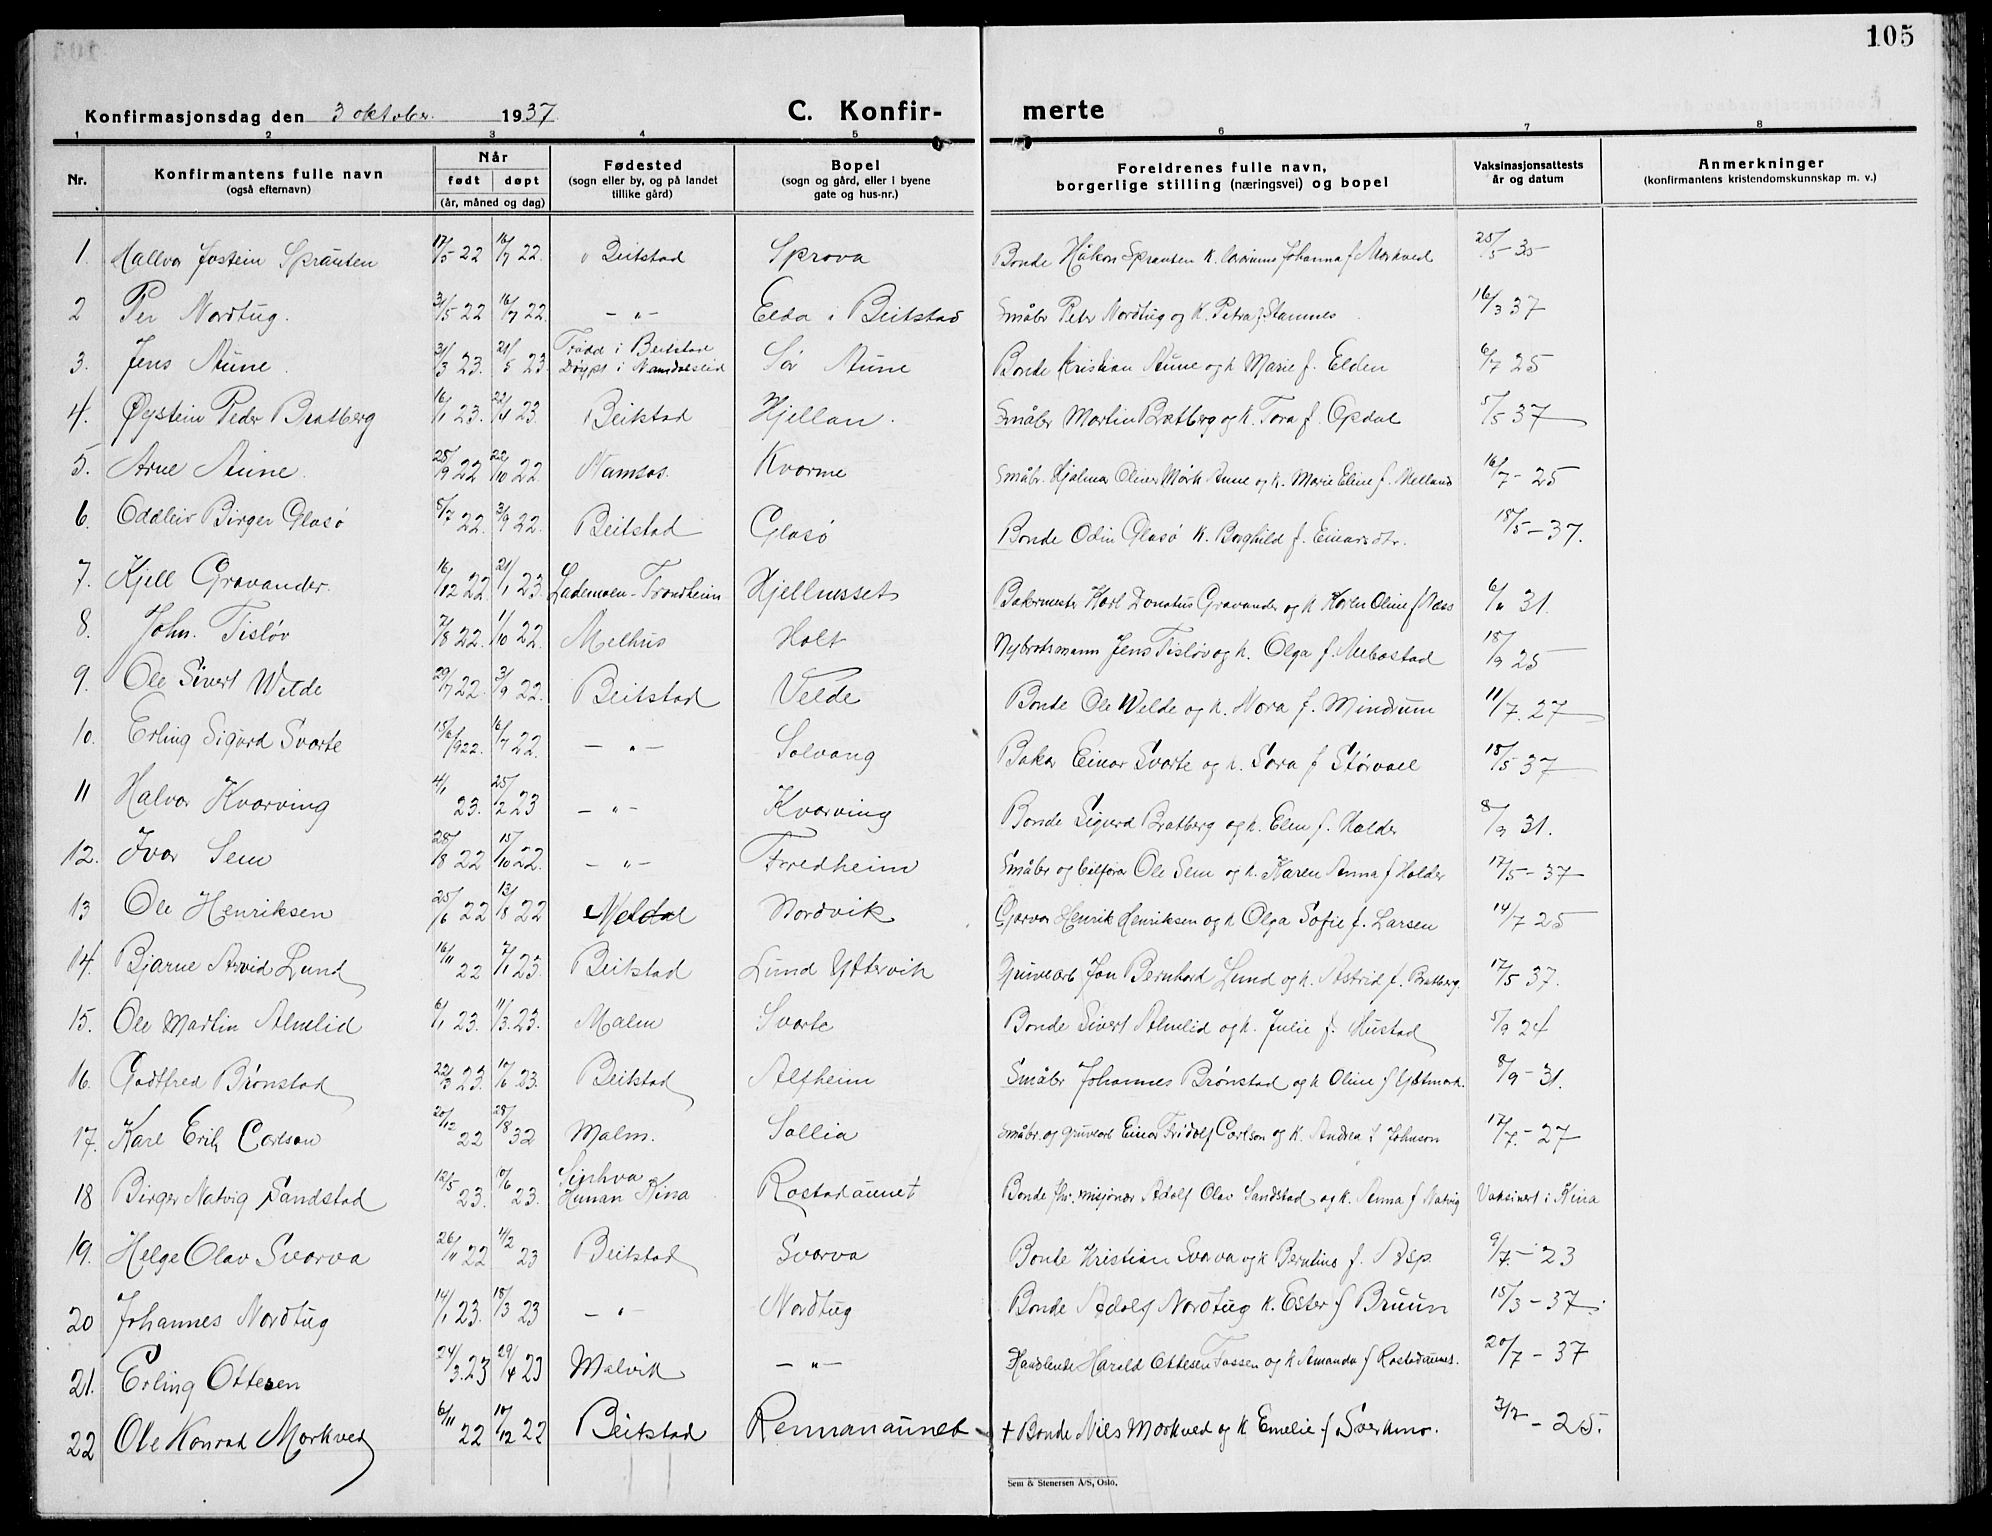 105
Konfirmasjonsdag den 3 oktober 1937 C. Konfir- merte
1 2 3 4 5 6 7 8
Nr. Konfirmantens fulle navn (også efternavn) Når født døpt (år, måned og dag) Fødested (sogn eller by, og på landet tillike gård) Bopel (sogn og gård, eller i byene gate og hus-nr.) Foreldrenes fulle navn, borgerlige stilling (næringsvei) og bopel Vaksinasjonsattests år og datum Anmerkninger (konfirmantens kristendomskunnskap m. v.)
1. Hallvar Jostein Sprauten 17/5 22 16/7 22. Beitstad Sprova Bonde Håkon Sprauten k. Johanna f Mørkved 25/5 35
2 Per Nordtug. 31/5 22 16/7 22. — " — Elda i Beitstad Småbr Peter Nordtug og k. Petra f. Stamnes 16/3 37
3. Jens Aune. 31/3 23. 21/5 23 Trødd i Beitstad Døypt i Namdalseid Sør Aune Bonde Kristian Aune og k Marie f. Elden 6/7 25
4. Øystein Peder Bratberg 16/1 23. 22/4 23. Beitstad Hjellan. Småbr Martin Bratberg og k. Tora f. Opdal 5/5 37
5. Arne Aune. 25/9 22 22/10 22 Namsos. Kvarme Småbr. Hjalmar Oliver Mørk Aune og k. Marie Eline f. Melland 16/7 - 25
6. Oddleiv Birger Glasø. 8/7 22. 3/9 22. Beitstad Glasø Bonde Odin Glasø k. Borghild f. Einarsdtr. 18/5 - 37.
7. Kjell Gravander. 16/12 22. 21/1 23. Lademoen - Trondheim Hjellnesset Bakermester Karl Donatus Gravander og k Karen Oline f Næss 6/11 31.
8. John. Tisløv 7/8 22. 1/10 22. Melhus Holt Nybrotsmann Jens Tisløv og k. Olga f. Mebostad 18/9 25
9. Ole Sivert Welde 29/7 22. 3/9 22. Beitstad Velde Bonde Ole Welde og k. Nora f. Mindrum 11/7. 27
10. Erling Sigurd Svarte 15/6 /922. 16/7 22. — " — Solvang Baker Einar Svarte og k. Sara f Størvoll 18/5 37
11 Halvor Kvarving 4/1 23. 25/2 23 — " — Kvarving Bonde Sigurd Bratberg og k. Elen f. Holder 8/9 31.
12. Ivar Sem 28/8 22 15/10 22. — " — Fredheim Småbr og bilfører Ole Sem og k. Karen Anna f Holder 17/5 - 37
13 Ole Henriksen 25/6 22 13/8 22 Meldal Nordvik Garver Henrik Henriksen og k Olga Sofie f. Larsen 14/7 25
14. Bjarne Arvid Lund 16/11 22 7/1 23. Beitstad Lund Yttervik Gruvearb Jon Bernhard Lund og k. Astrid f. Bratberg. 17/5 37.
15. Ole Martin Almlid 6/1 23. 11/3. 23. Malm Svarte Bonde Sivert Almlid og k. Julie f. Hustad 5/9 24
16. Godtfred Brønstad 22/3 23. 10/6 23. Beitstad Alfheim Småbr Johannes Brønstad og k Oline f Ystmark. 8/9 - 31.
17. Karl Erik Carlson 20/12 22 28/8 32 Malm. Sollia Småbr. og gruvearb Einar Fridolf Carlson og k. Andrea f Johnson 17/7. - 27
18 Birger Natvig Sandstad 12/5 23. 10/6 23. Sinhva Hunan Kina Rostadaunet Bonde fhv. misjonær Adolf Olav Sandstad og k. Anna f Natvig Vaksinert i Kina
19. Helge Olav Svarva 26/11 22 11/2 23 Beitstad Svarva Bonde Kristian Svarva og k Berntine f. Asp. 9/7. - 23
20 Johannes Nordtug 14/1 23. 18/3 23 — " — Nordtug Bonde Adolf Nordtug k. Ester f Bruun 15/3 - 37.
21. Erling Ottesen 24/3. 23 29/4 23 Malvik — " — Handlende Harald Ottesen Fossen og k Amanda f Rostadaunet. 20/7 - 37
22 Ole Konrad Mørkved 6/11 22 10/12 22 Beitstad Remmanaunet + Bonde Nils Mørkved og k Emelie f Sverkmo. 3/7 - 25.
Sem & Stenersen A/S, Oslo.